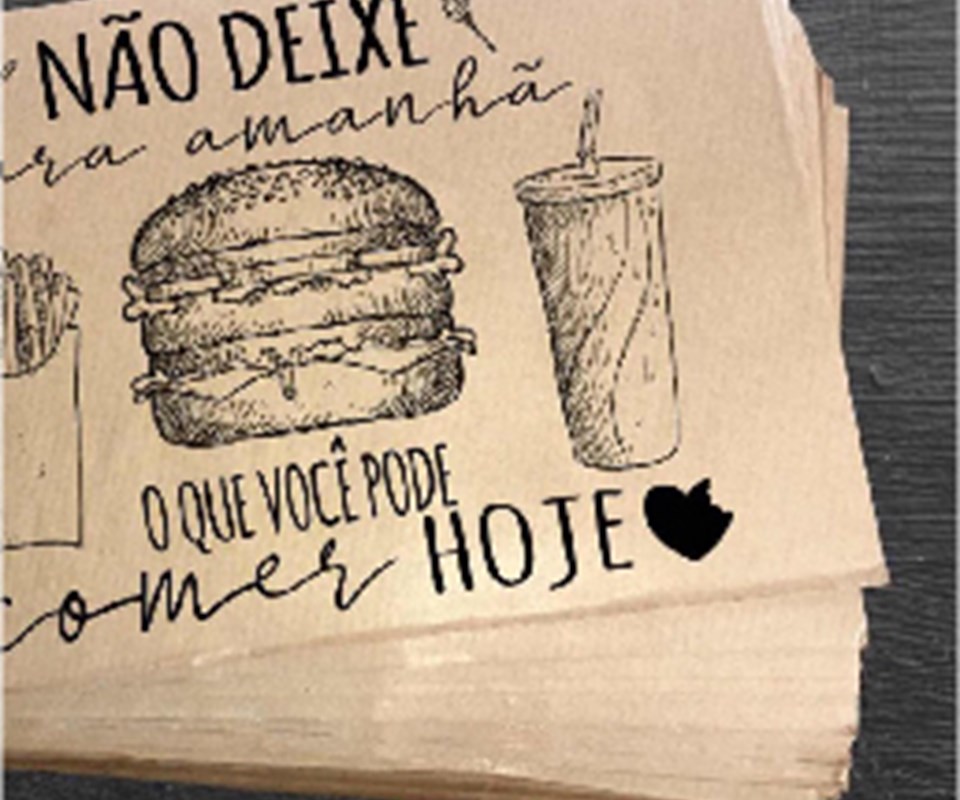 NÃO DEIXE
ra amanhã
O QUE VOCÊ PODE
comer HOJE